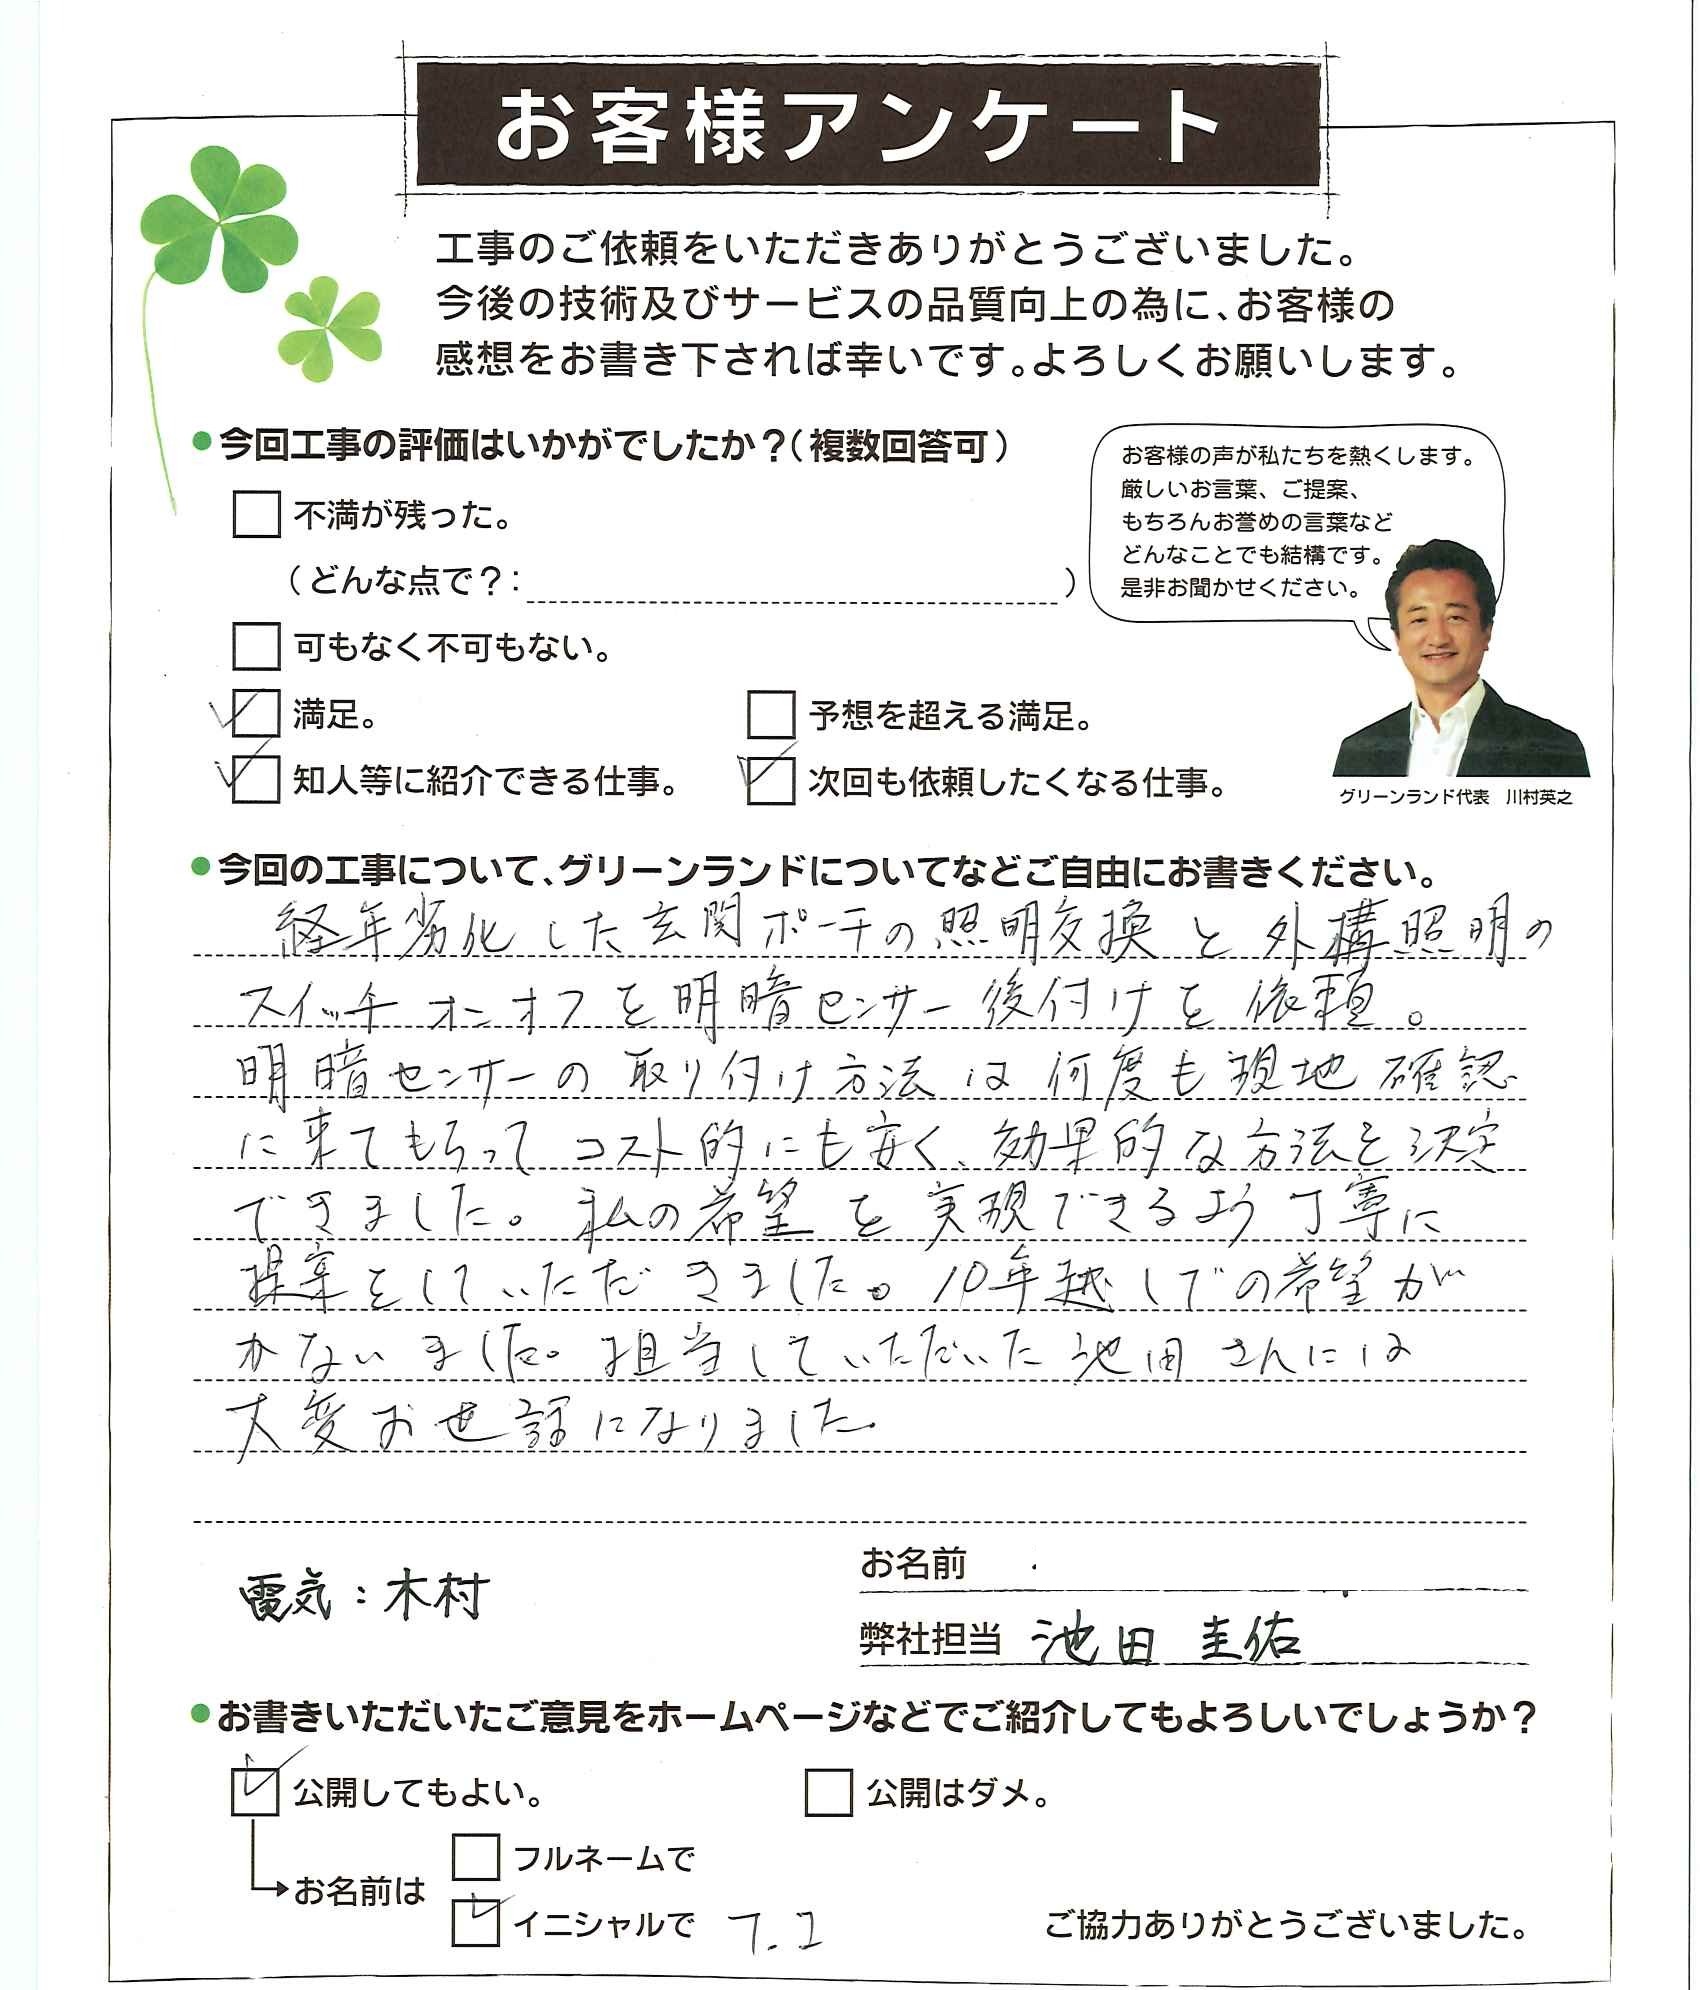 お客様アンケート
工事のご依頼をいただきありがとうございました。
今後の技術及びサービスの品質向上の為に、お客様の
感想をお書き下されば幸いです。よろしくお願いします。
●今回工事の評価はいかがでしたか？（複数回答可）
お客様の声が私たちを熱くします。
厳しいお言葉、ご提案、
もちろんお誉めの言葉など
どんなことでも結構です。
是非お聞かせください。
グリーンランド代表　川村英之
不満が残った。
（どんな点で？：　）
可もなく不可もない。
満足。　予想を超える満足。
知人等に紹介できる仕事。　次回も依頼したくなる仕事。
●今回の工事について、グリーンランドについてなどご自由にお書きください。
経年劣化した玄関ポーチの照明交換と外構照明の
スイッチオンオフを明暗センサー後付けを依頼。
明暗センサーの取り付け方法は何度も現地確認
に来てもらってコスト的にも安く、効果的な方法を決定
できました。私の希望を実現できるよう丁寧に
提案をしていただきました。10年越しでの希望が
かないました。担当していただいた池田さんには
大変お世話になりました
お名前
電気：木村
弊社担当　池田 圭佑
●お書きいただいたご意見をホームページなどでご紹介してもよろしいでしょうか？
公開してもよい。　公開はダメ。
フルネームで
お名前は
イニシャルで T.I
ご協力ありがとうございました。